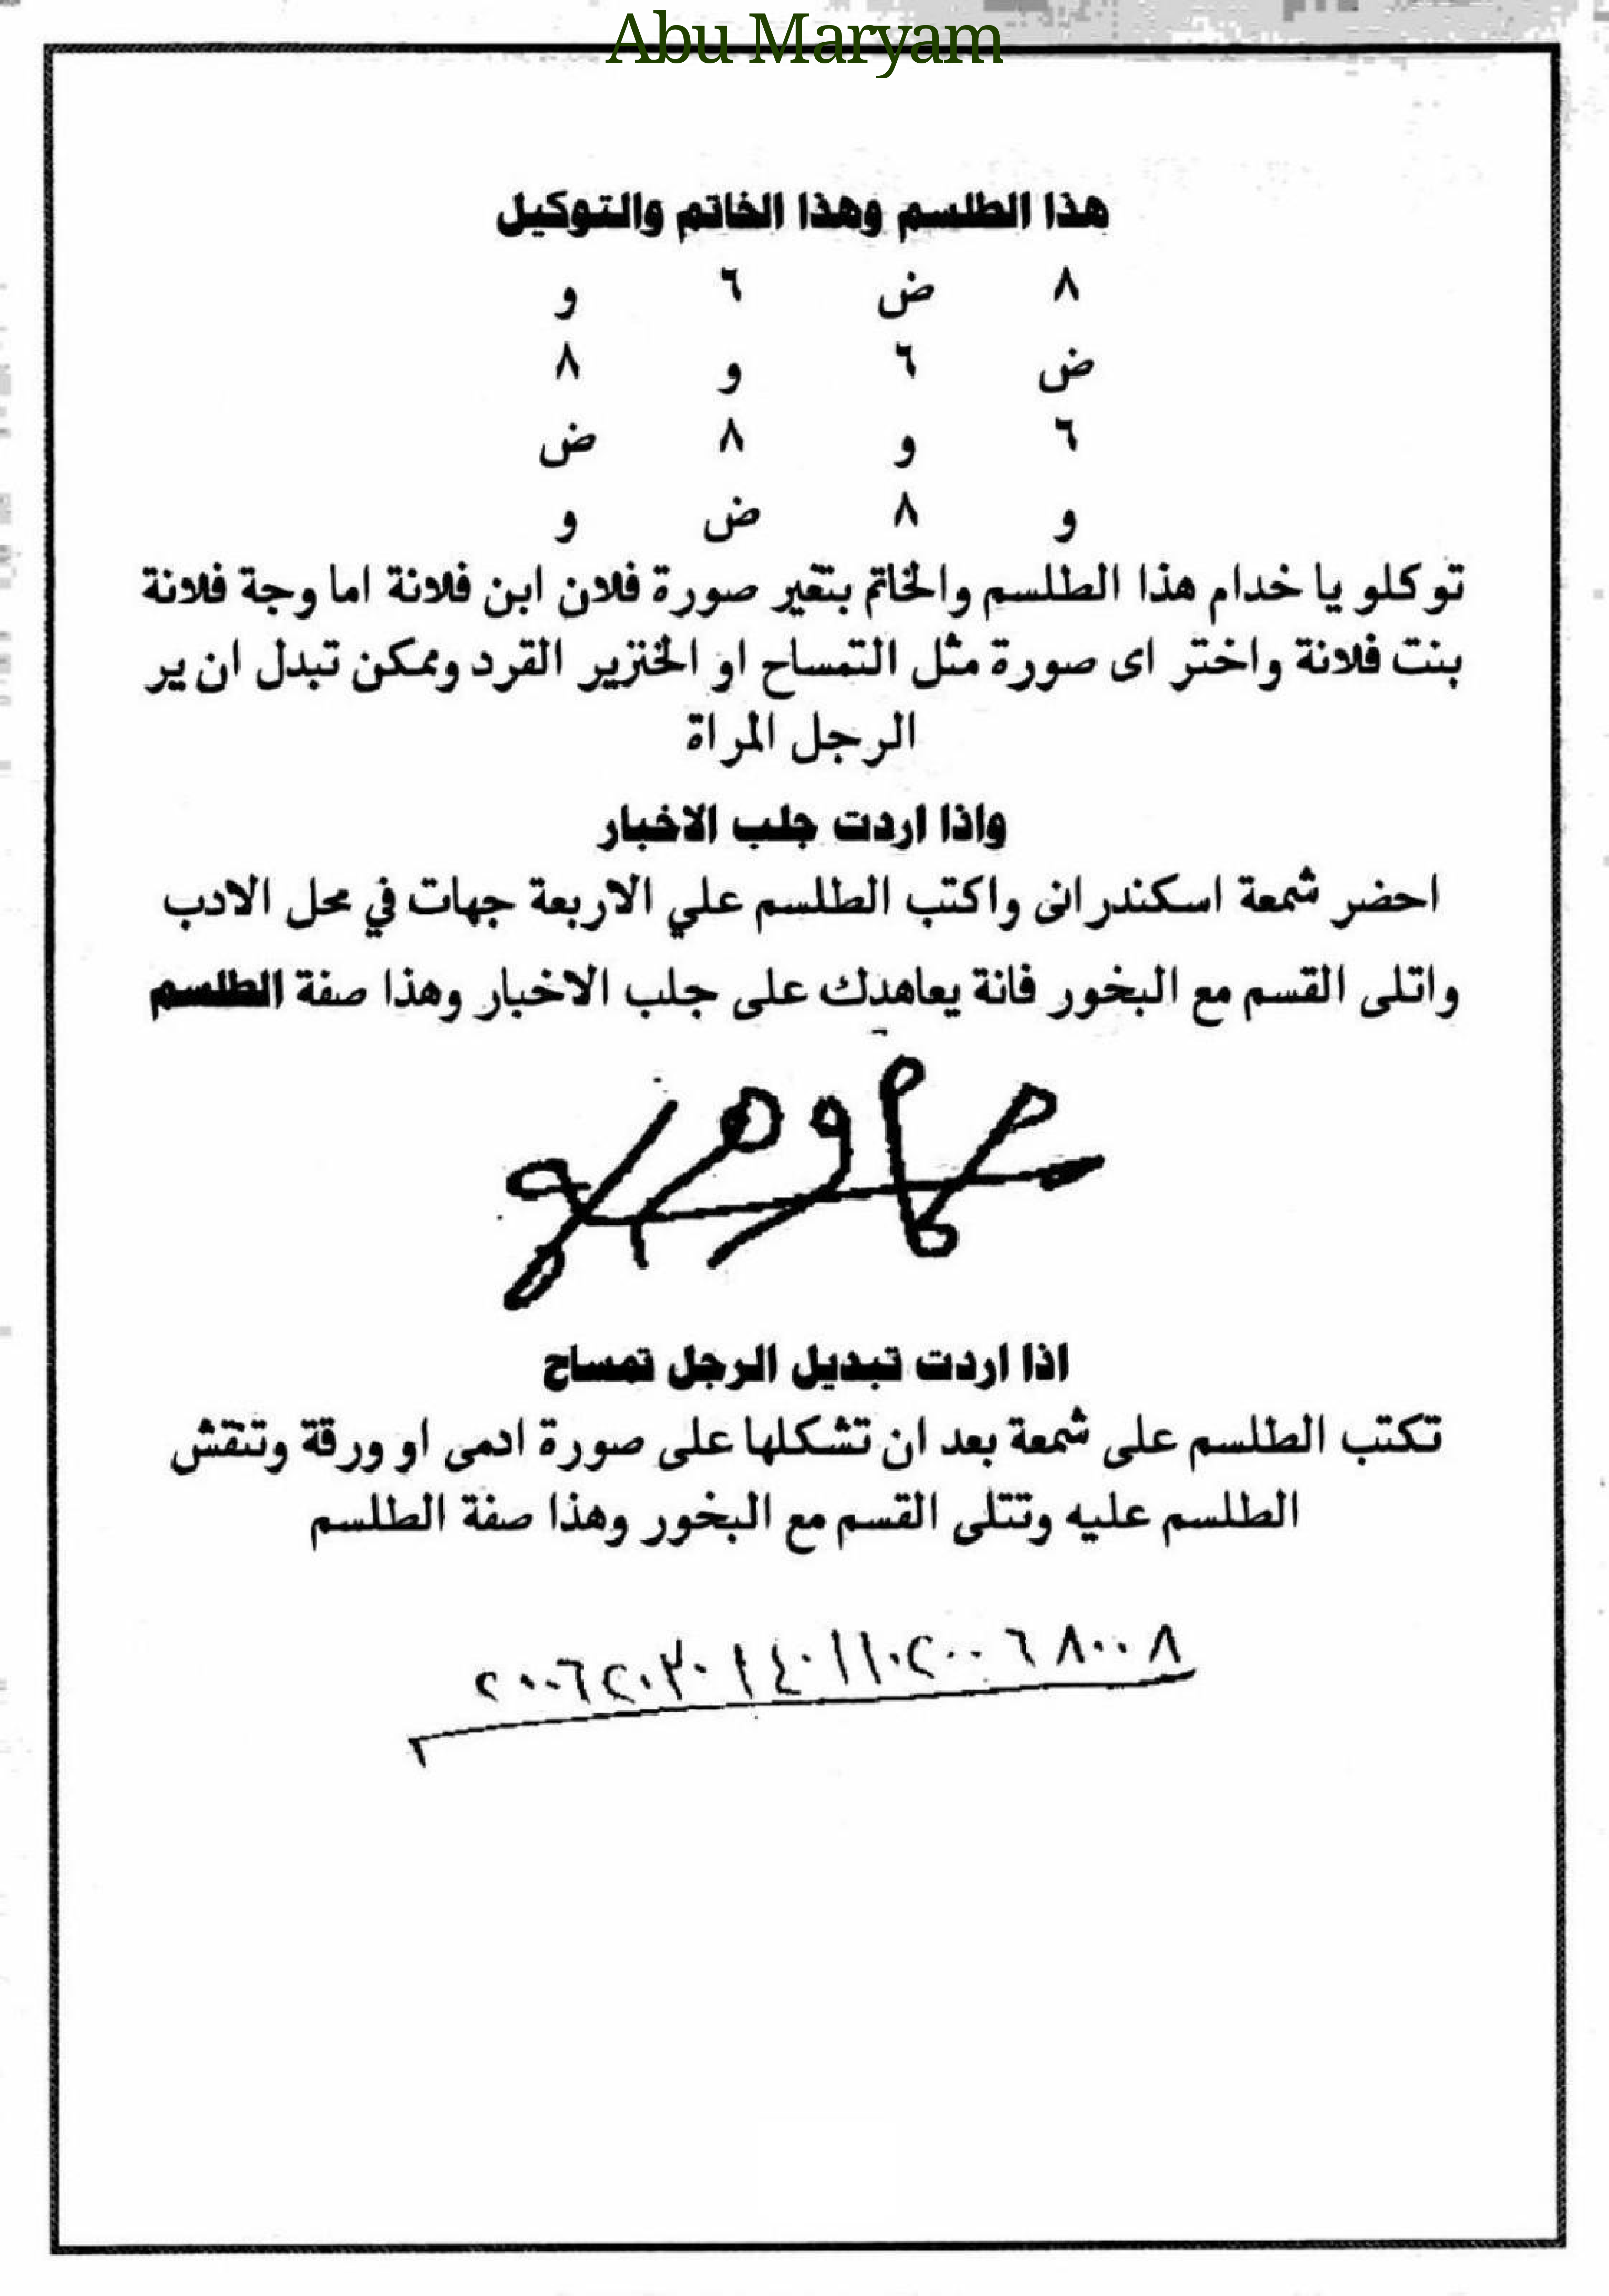 Abu Maryam
هذا الطلسم وهذا الخاتم والتوكيل
٨ ض ٦ و
ض ٦ و ٨
٦ و ٨ ض
و ٨ ض و
توكلو يا خدام هذا الطلسم والخاتم بتغير صورة فلان ابن فلانة اما وجة فلانة
بنت فلانة واختر اى صورة مثل التمساح او الخنزير القرد وممكن تبدل ان ير
الرجل المراة
واذا اردت جلب الاخبار
احضر شمعة اسكندرانى واكتب الطلسم علي الاربعة جهات في محل الادب
واتلى القسم مع البخور فانة يعاهدك على جلب الاخبار وهذا صفة الطلسم
اذا اردت تبديل الرجل تمساح
تكتب الطلسم على شمعة بعد ان تشكلها على صورة ادمى او ورقة وتنقش
الطلسم عليه وتتلى القسم مع البخور وهذا صفة الطلسم